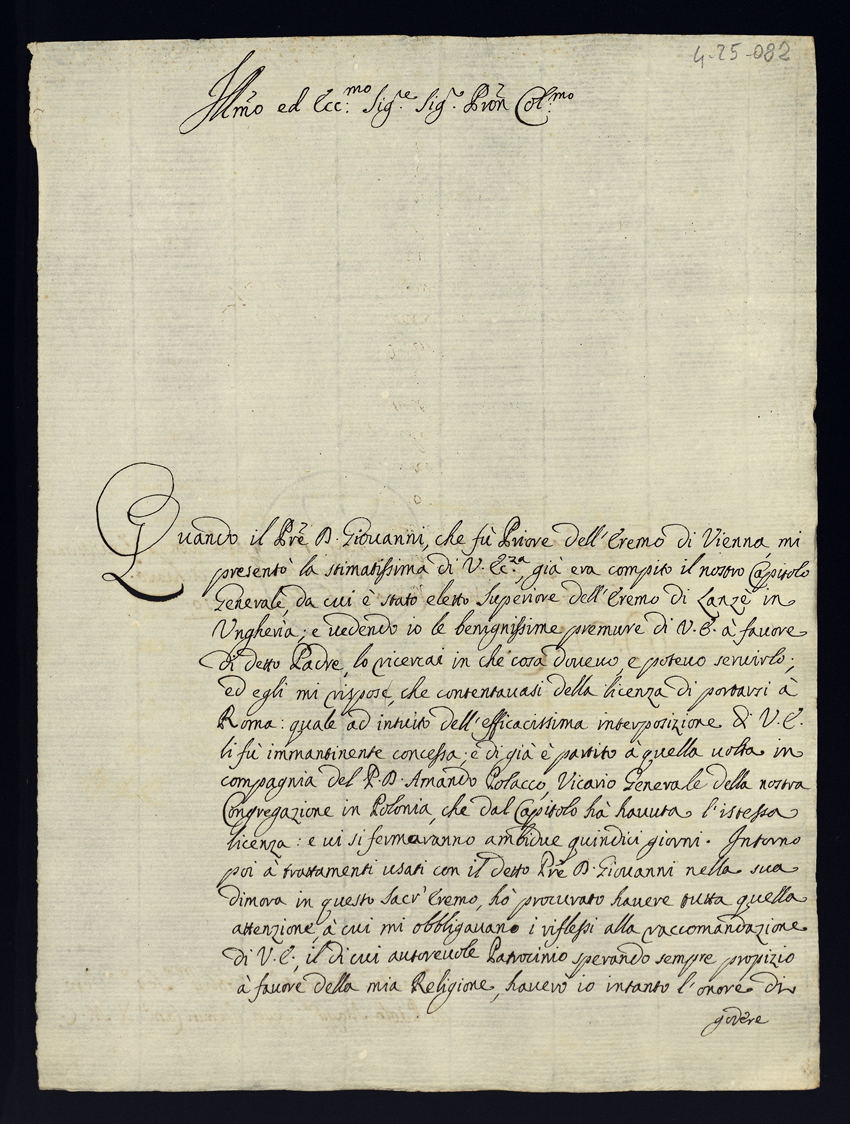 4-25-082
Illmo ed Ecc:mo Sig:e Sig:r Pron Col:mo
Quando il Pre D. Giovanni, che fù Priore dell'Eremo di Vienna, mi
presentò la stimatissima di V. Ec:za, già era compito il nostro Capitolo
Generale, da cui è stato eletto Superiore dell'Eremo di Lanzè in
Vngheria; e uedendo io le benignissime premure di V. E. à fauore
di detto Padre, lo ricercai in che cosa doueuo, e poteuo seruirlo;
ed egli mi rispose, che contentauasi della licenza di portarsi à
Roma: quale ad intuito dell'efficacissima interposizione di V. E.
li fù immantinente concessa; e di già è partito à quella uolta in
compagnia del P. D. Amando Polacco, Vicario Generale della nostra
Congregazione in Polonia, che dal Capitolo hà hauuta l'istessa
licenza: e ui si fermaranno ambidue quindici giorni. Intorno
poi à trattamenti usati con il detto Pre D. Giouanni nella sua
dimora in questo Sacr'Eremo, hò procurato hauere tutta quella
attenzione, à cui mi obbligauano i riflessi alla raccomandazione
di V. E., il di cui autoreuole Patrocinio sperando sempre propizio
à fauore della mia Religione, hauerò io intanto l'onore di
godere